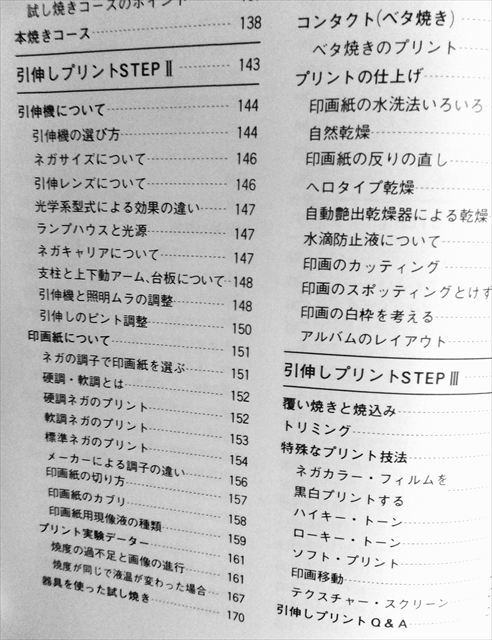 試し焼きコースのポイント
本焼きコース 138
引伸しプリントSTEP Ⅱ 143
引伸機について 144
引伸機の選び方 144
ネガサイズについて 146
引伸レンズについて 146
光学系型式による効果の違い 147
ランプハウスと光源 147
ネガキャリアについて 147
支柱と上下動アーム、台板について 148
引伸機と照明ムラの調整 148
引伸しのピント調整 150
印画紙について 151
ネガの調子で印画紙を選ぶ 151
硬調・軟調とは 152
硬調ネガのプリント 152
軟調ネガのプリント 153
標準ネガのプリント 154
メーカーによる調子の違い 156
印画紙の切り方 157
印画紙のカブリ 158
印画紙用現像液の種類 159
プリント実験データー 161
焼度の過不足と画像の進行 161
焼度が同じで液温が変わった場合 167
器具を使った試し焼き 170
コンタクト(ベタ焼き)
ベタ焼きのプリント
プリントの仕上げ
印画紙の水洗法いろいろ
自然乾燥
印画紙の反りの直し
ヘロタイプ乾燥
自動艶出乾燥器による乾燥
水滴防止液について
印画のカッティング
印画のスポッティングとけず
印画の白枠を考える
アルバムのレイアウト
引伸しプリントSTEP Ⅲ
覆い焼きと焼込み
トリミング
特殊なプリント技法
ネガカラー・フィルムを
黒白プリントする
ハイキー・トーン
ローキー・トーン
ソフト・プリント
印画移動
テクスチャー・スクリーン
引伸しプリントQ&A